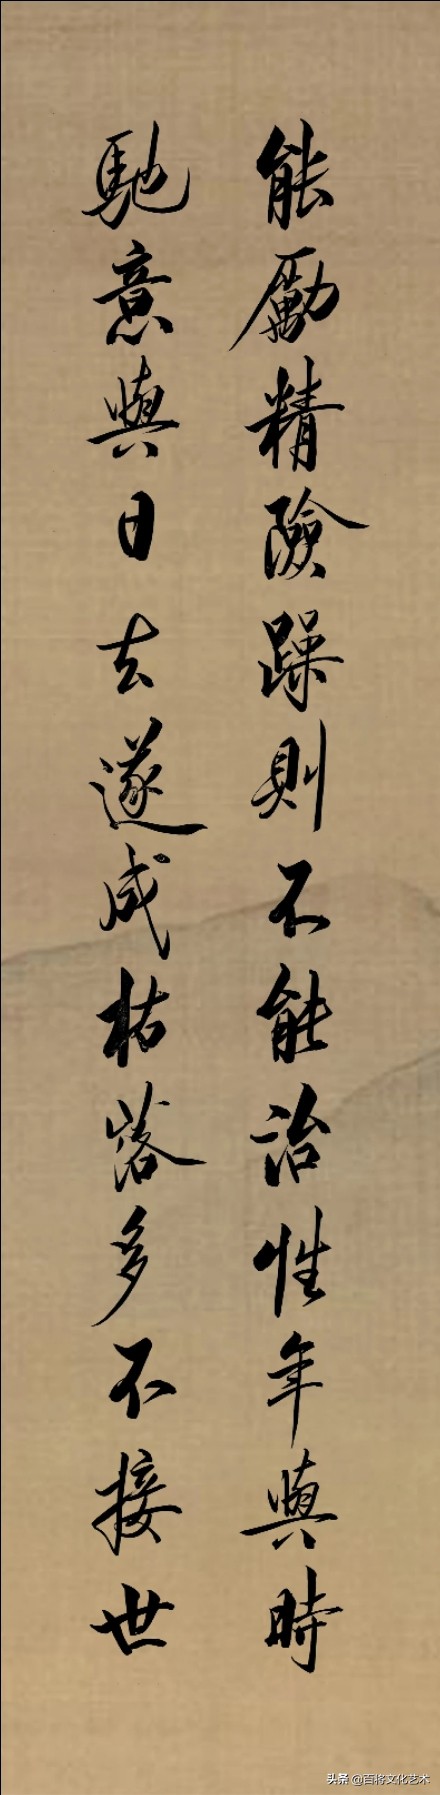 能勵精險躁則不能治性年與時
馳意與日去遂成枯落多不接世
头条 @百将文化艺术